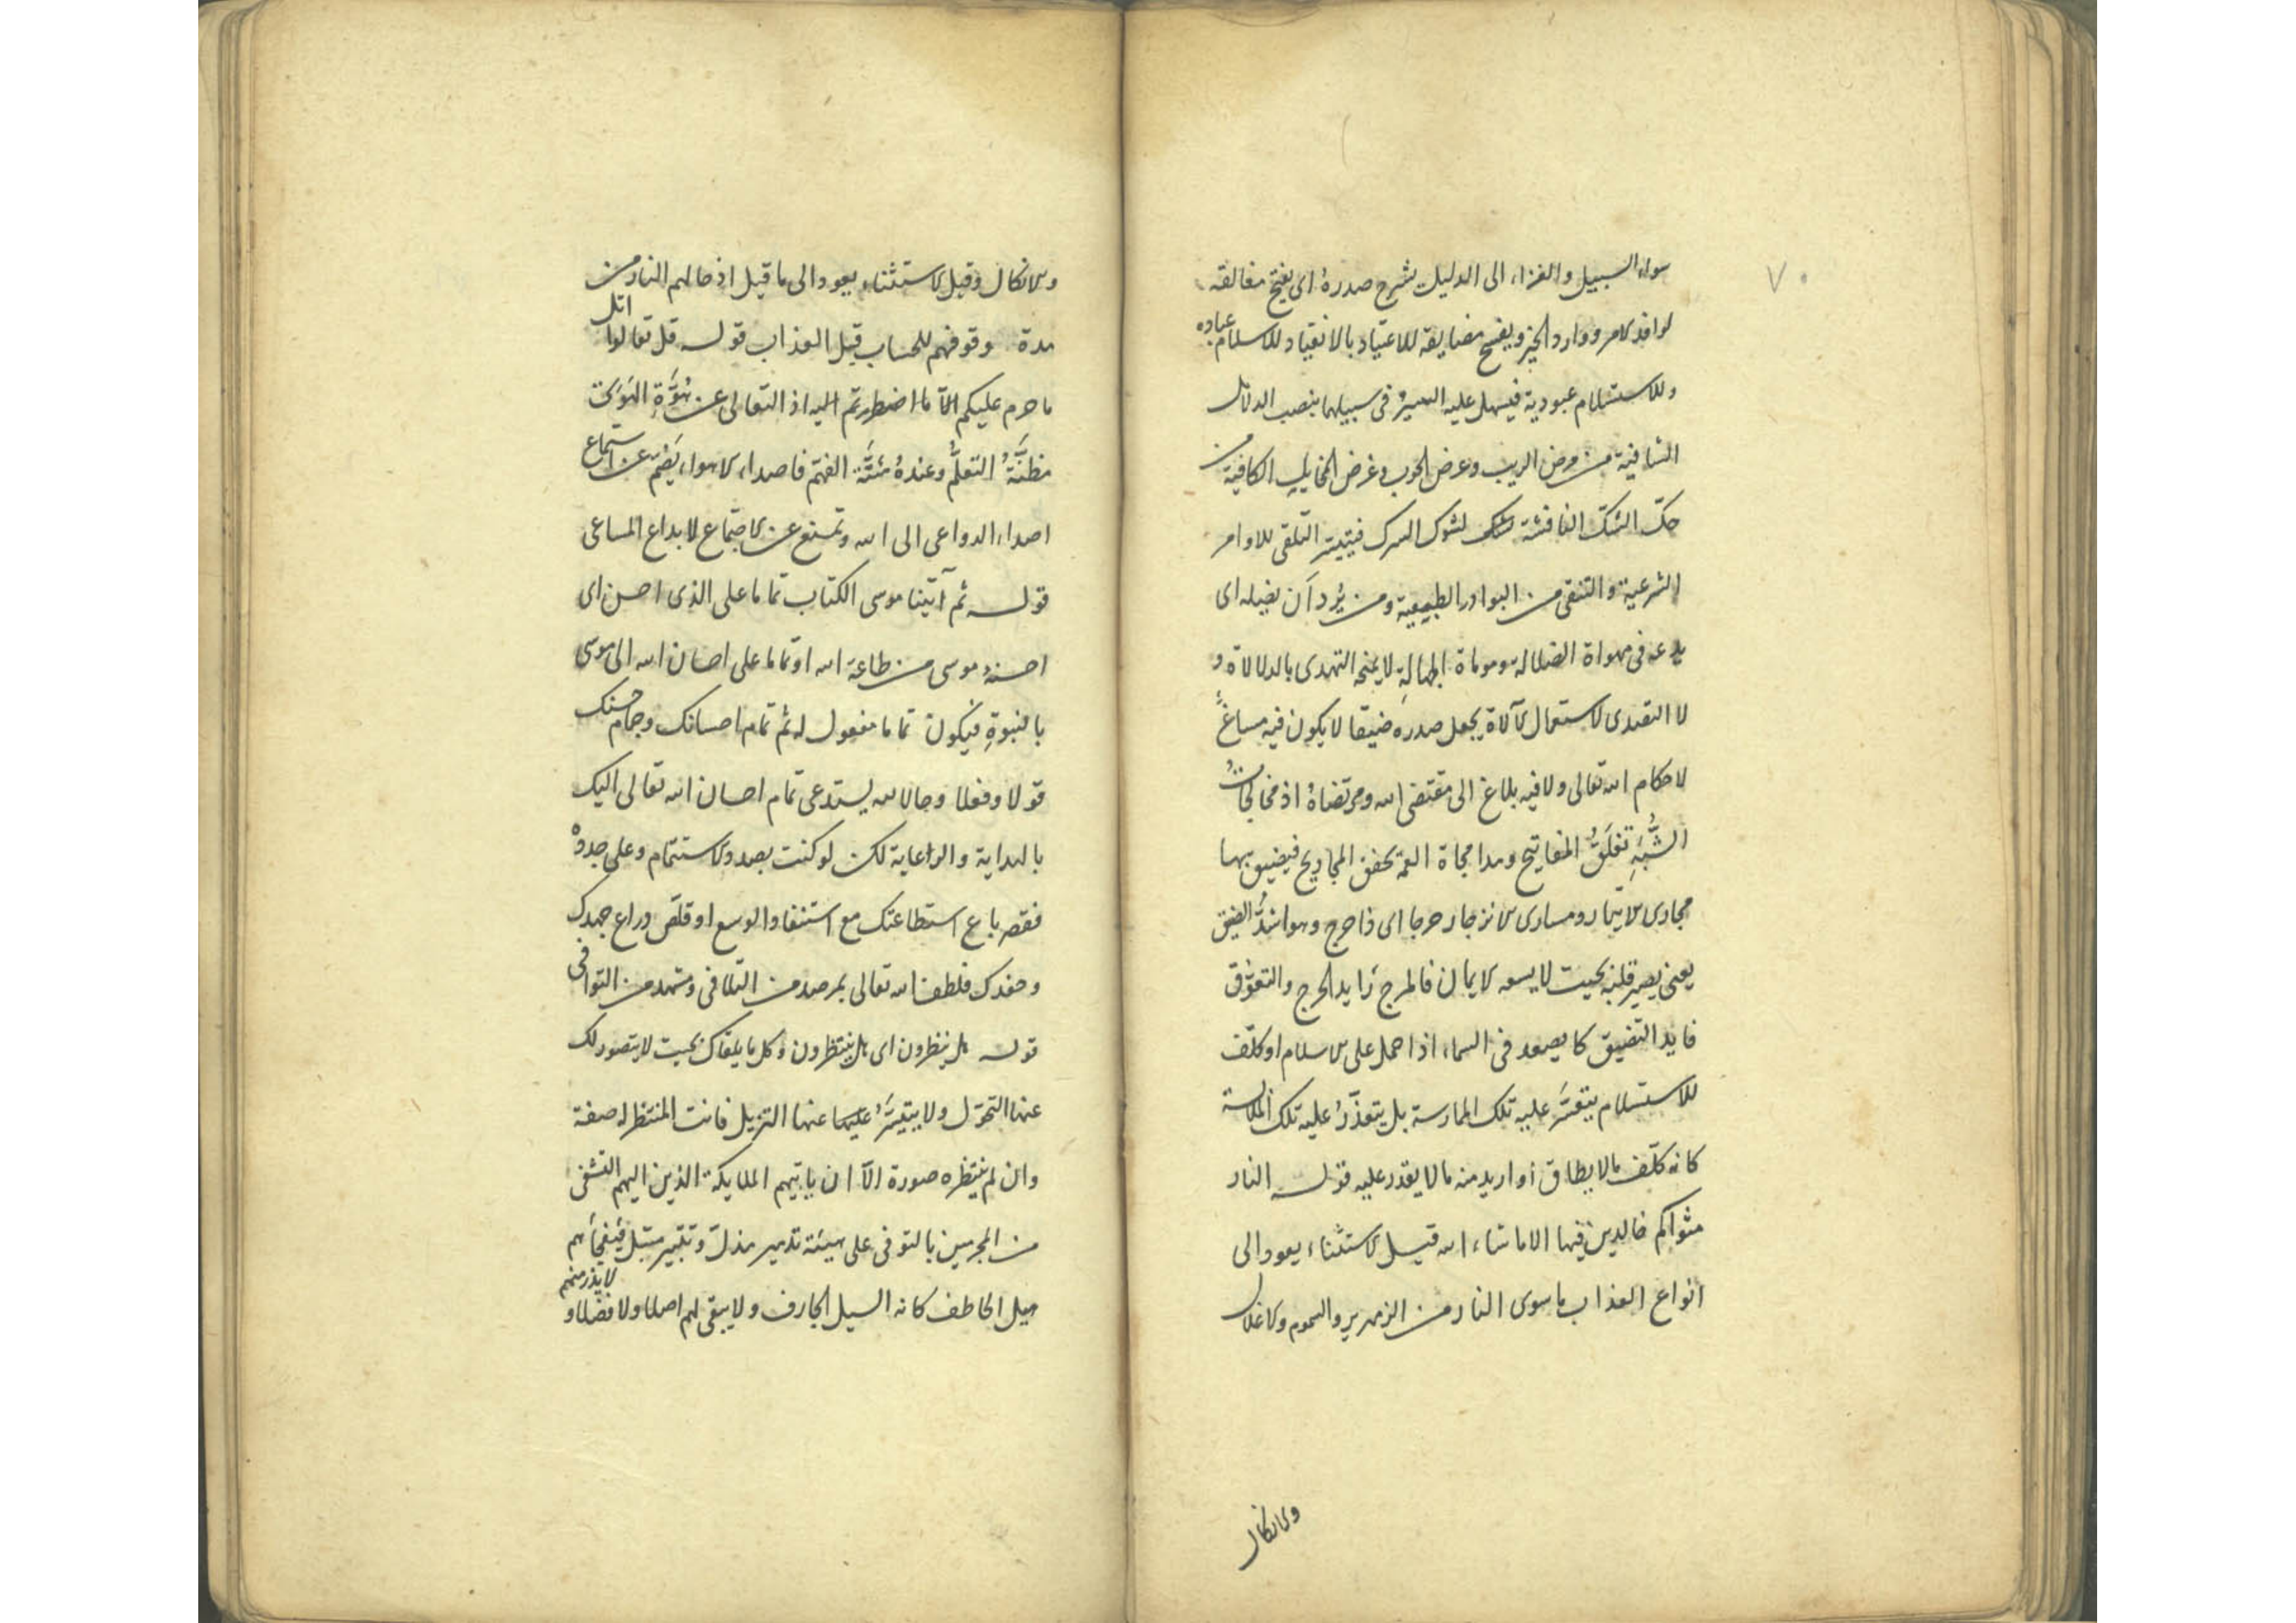 ٧٠
سواء السبيل والغزاء الى الدليل يشرح صدره اى يفتح مغالقه
لوافد الامر ووارد الخير ويفسح مضايقه للاعتياد بالانقياد للاسلام عباده
وللاستسلام عبودية فيسهل عليه السير فى سبيلهما بنصب الدلائل
الشافية من مرض الريب وعرض الحوب وغرض المخايل الكافية من
حك الشك النافثة لشوك الشرك فيتيسر التلقى للاوامر
الشرعية والتنقى من البوادر الطبيعية ومن يُرد اَن يضله اى
يدعه فى مهواة الضلالة وموماة الجهالةِ لا يمنحه التهدى بالدلالاة و
لا التصدى لاستعمال الآلاة يجعل صدره ضيقا لا يكون فيه مساغ
لاحكام الله تعالى ولا فيه بلاغ الى مقتضى الله ومرتضاهُ اذ
الشُّبَهِ تغلق المفاتيح ومداجاة العمه فيضيق بها
مجارى الايتمار ومسارى الانزجار حرجا اى ذا حرج وهو اشدُّ الضيق
يعنى يصير قلبه بحيث لا يسعه الايمان فالحرج زايد الحرج والتعوّق
فايد التضيق كا يصعد فى السماء اذا حمل على الاسلام او كلّف
للاستسلام يتعسَّر عليه تلك الممارسة بل يتعذّرُ عليه تلك الملابسة
كانه كلّف ما لا يطاق او اريد منه ما لا يقدر عليه قوله النار
مثواكم خالدين فيها الا ما شاء الله قيل الاستثناء يعود الى
انواع العذاب ما سوى النار من الزمهرير والسموم والاغلال
والانكال
والانكال وقيل الاستثناء يعود الى ما قبل ادخالهم النار من
مدة وقوفهم للحساب قبل العذاب قوله قل تعالوا اتل
ما حرم عليكم الّا ما اضطررتم اليه اذ التعالى عن هُوَّةِ الهَوىَ
مظنَّةُ التعلُّم وعندهُ مئنَّة الفهم فاصداء الاهواء يَصُمّ عن استماع
اصداء الدواعى الى الله وتمنع عن الاجتماع لابداع المساعى
قوله ثم آتينا موسى الكتاب تماما على الذى احسن اى
احسنهُ موسى من طاعة الله او تماما على احسان الله الى موسى
بالنبوةِ فيكون تماما مفعول له ثم تمام احسانك وجمام حسنك
قولا وفعلا وحالا لله يستدعى تمام احسان الله تعالى اليك
بالهداية والراعاية لكن لو كنت بصدد الاستتمام وعلى جددهْ
فقصر باع استطاعتك مع استنفاد الوسع او قلصَ ذراع جهدك
وحفدك فلطف الله تعالى بمرصد من التلافى ومشهد من التوافى
قوله هل ينظرون اى هل ينتظرون وكل ما يلقاك بحيث لا يتصور لك
عنها التحوّل ولا يتيسَّرُ عليها عنها التزيل فانت المنتظر له صفة
وان لم ينتظره صورة الّا ان ياتيهم الملايكة الذين اليهم التشفى
من المجرمين بالتوفى على هيئة تدمير مذل وتتبير مثبل فيفجأهم
ميل الخاطف كانه السيل الجارف ولا يبقى لهم اصلا ولا فضلا و لا يذر منهم